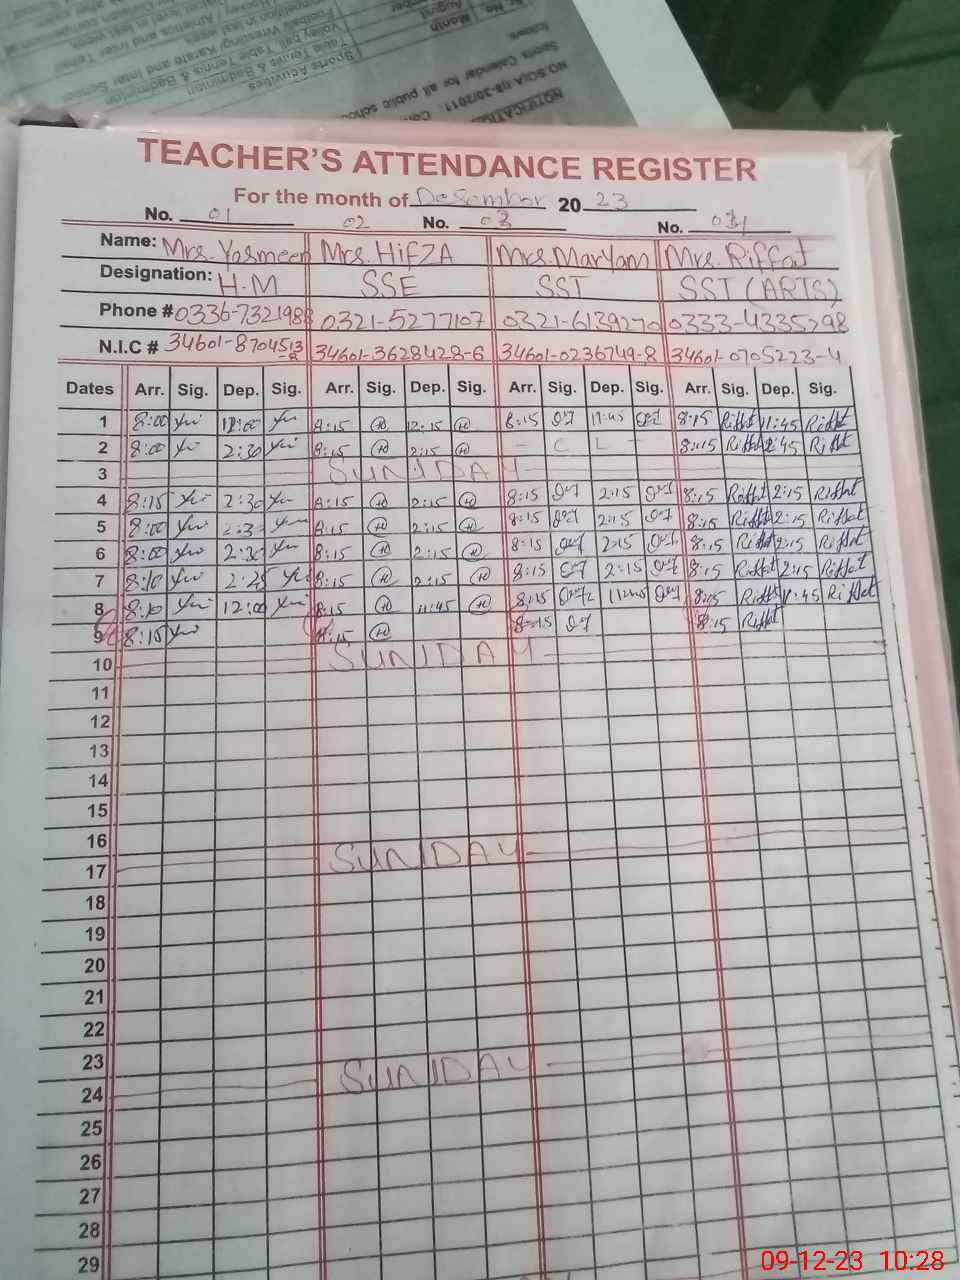 NOTIFICATION
NO.SO(A-I)8-30/2011
Sports Calendar for all public
follows
Sr. No
Month
Sports Activities
August
Table Tennis & Badminton
TEACHER'S ATTENDANCE REGISTER
For the month of Desember 2023
No. 01 02 No. 03 No. 031
Name: Mrs. Yasmeen Mrs. HifZA Mrs. Maryam Mrs. Riffat
Designation: H.M SSE SST SST (ARTS)
Phone # 0336-7321988 0321-5277107 0321-6139270 0333-4335298
N.I.C # 34601-8704513 34601-3628428-6 34601-0236749-8 34601-0705223-4
Dates Arr. Sig. Dep. Sig. Arr. Sig. Dep. Sig. Arr. Sig. Dep. Sig. Arr. Sig. Dep. Sig.
1 8:00 12:00 8:15 H 12:15 H 8:15 11:45 8:15 Riffat 11:45 Riffat
2 8:00 2:30 8:15 H 2:15 H - C L - 8:15 Riffat 2:45 Riffat
3 SUNDAY
4 8:15 2:30 8:15 H 2:15 H 8:15 2:15 8:15 Riffat 2:15 Riffat
5 8:00 2:3 8:15 H 2:15 H 8:15 2:15 8:15 Riffat 2:15 Riffat
6 8:00 2:30 8:15 H 2:15 H 8:15 2:15 8:15 Riffat 2:15 Riffat
7 8:10 2:25 8:15 H 2:15 H 8:15 2:15 8:15 Riffat 2:15 Riffat
8 8:10 12:00 8:15 H 11:45 H 8:15 11:45 8:15 Riffat 11:45 Riffat
9 8:15 8:15 H 8:15 8:15 Riffat
10 SUNDAY
11
12
13
14
15
16
17 SUNDAY
18
19
20
21
22
23
24 SUNDAY
25
26
27
28
29
09-12-23 10:28